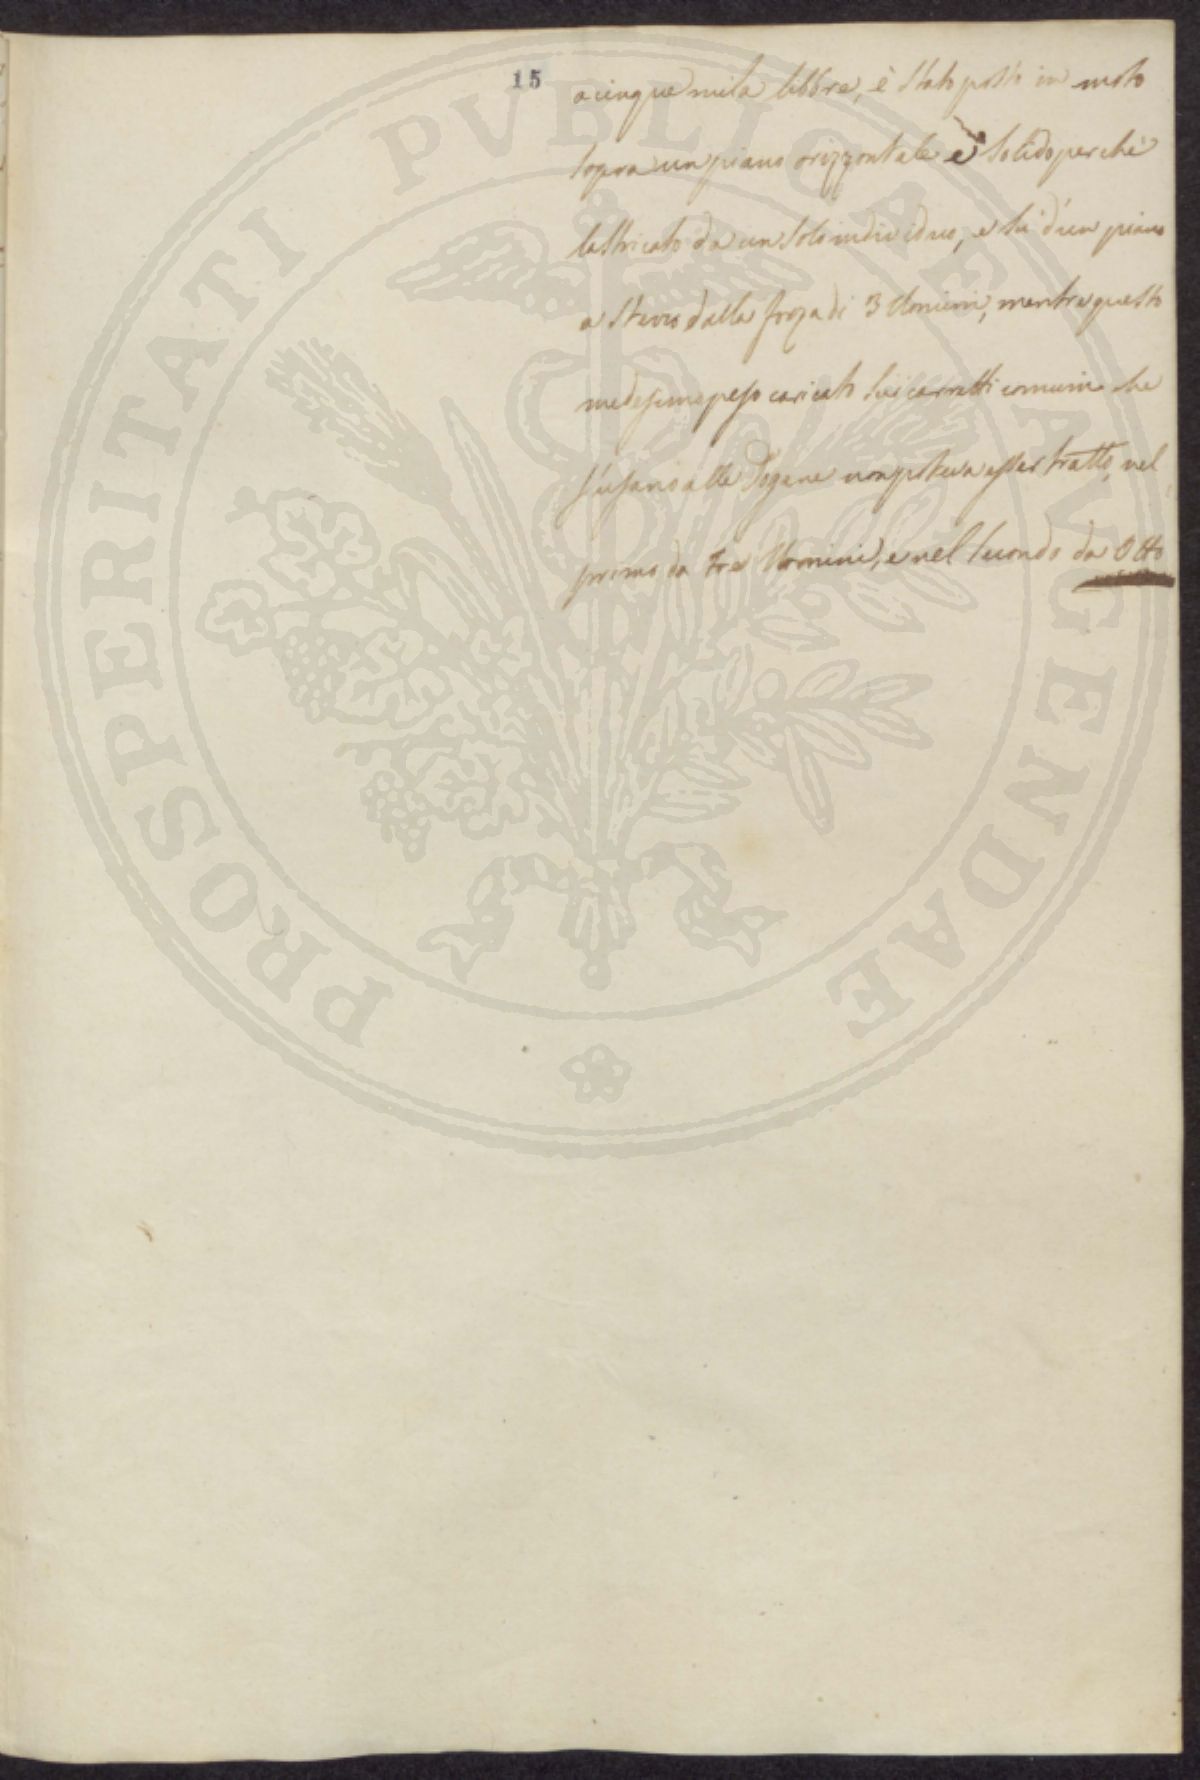 15
a cinque mila libbre, è stato posto in moto
sopra un piano orizzontale e solido perché
lastricato da un solo individuo, e su d'un piano
a sterro dalla forza di 3 Uomini, mentre questo
medesimo peso caricato sui carretti comuni che
s'usano alle Dogane non poteva esser tratto, nel
primo da tre Uomini, e nel secondo da Otto
PROSPERITATI PVBLICAE AVGENDAE